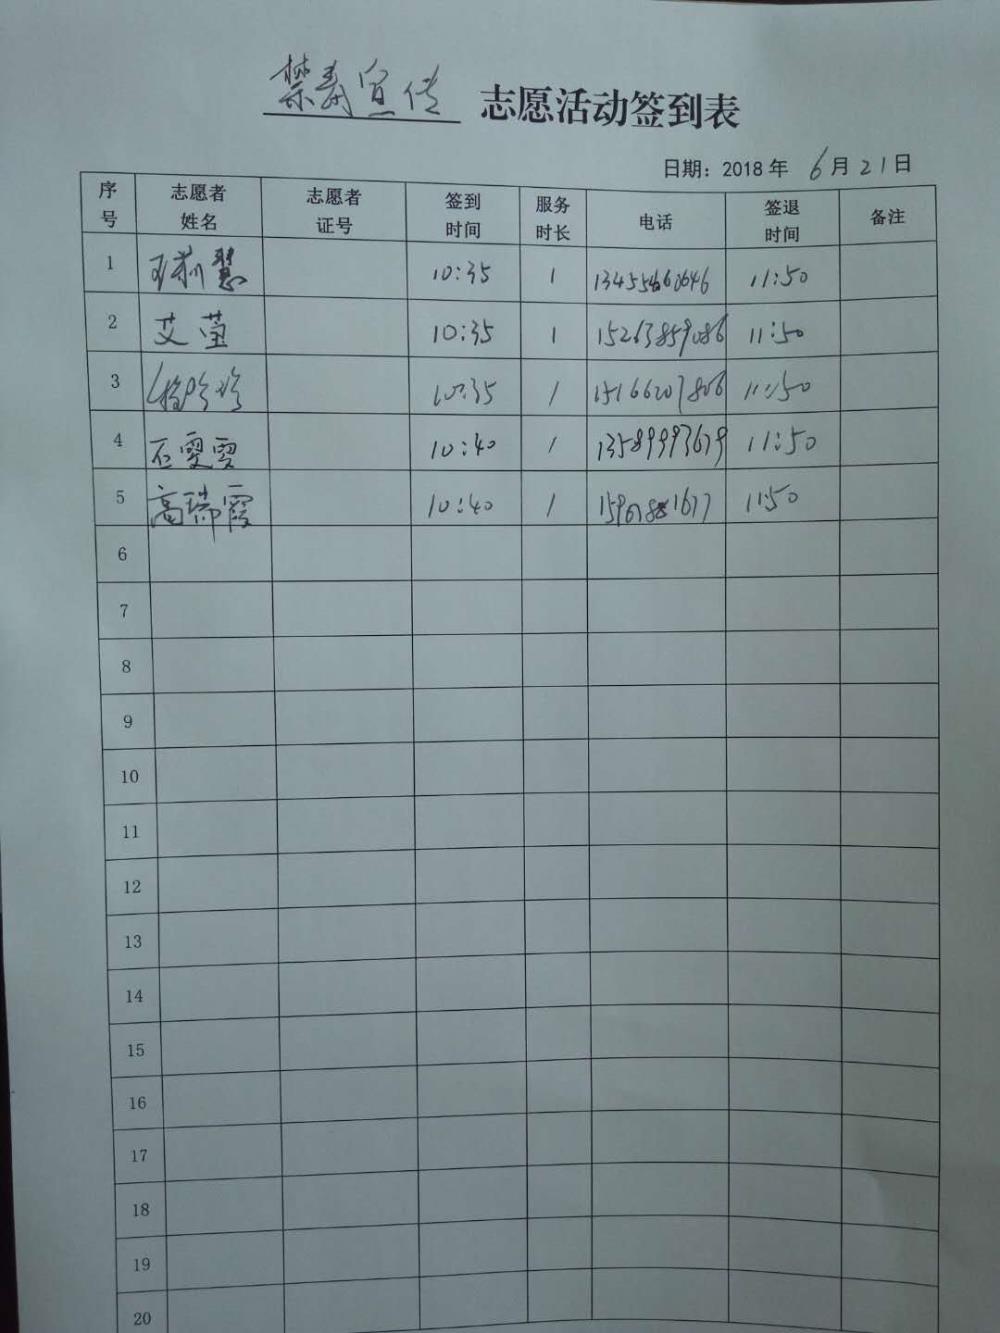 禁毒宣传 志愿活动签到表
日期：2018年 6月21日
序号 志愿者姓名 志愿者证号 签到时间 服务时长 电话 签退时间 备注
1 慧 10:35 1 11:50
2 艾莹 10:35 1 15263859086 11:50
3 10:35 1 15166207806 11:50
4 石雯雯 10:40 1 13589993679 11:50
5 高瑞霞 10:40 1 11:50
6
7
8
9
10
11
12
13
14
15
16
17
18
19
20